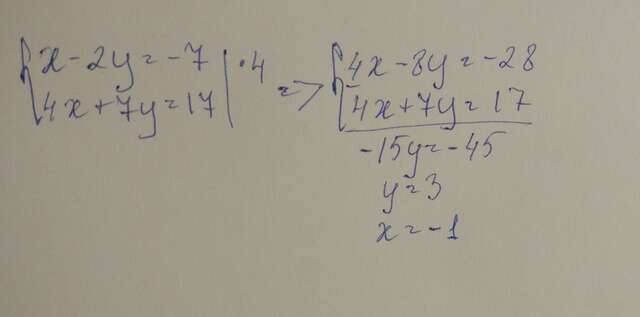 x - 2y = -7 | · 4
4x + 7y = 17
=>
4x - 8y = -28
4x + 7y = 17
-15y = -45
y = 3
x = -1